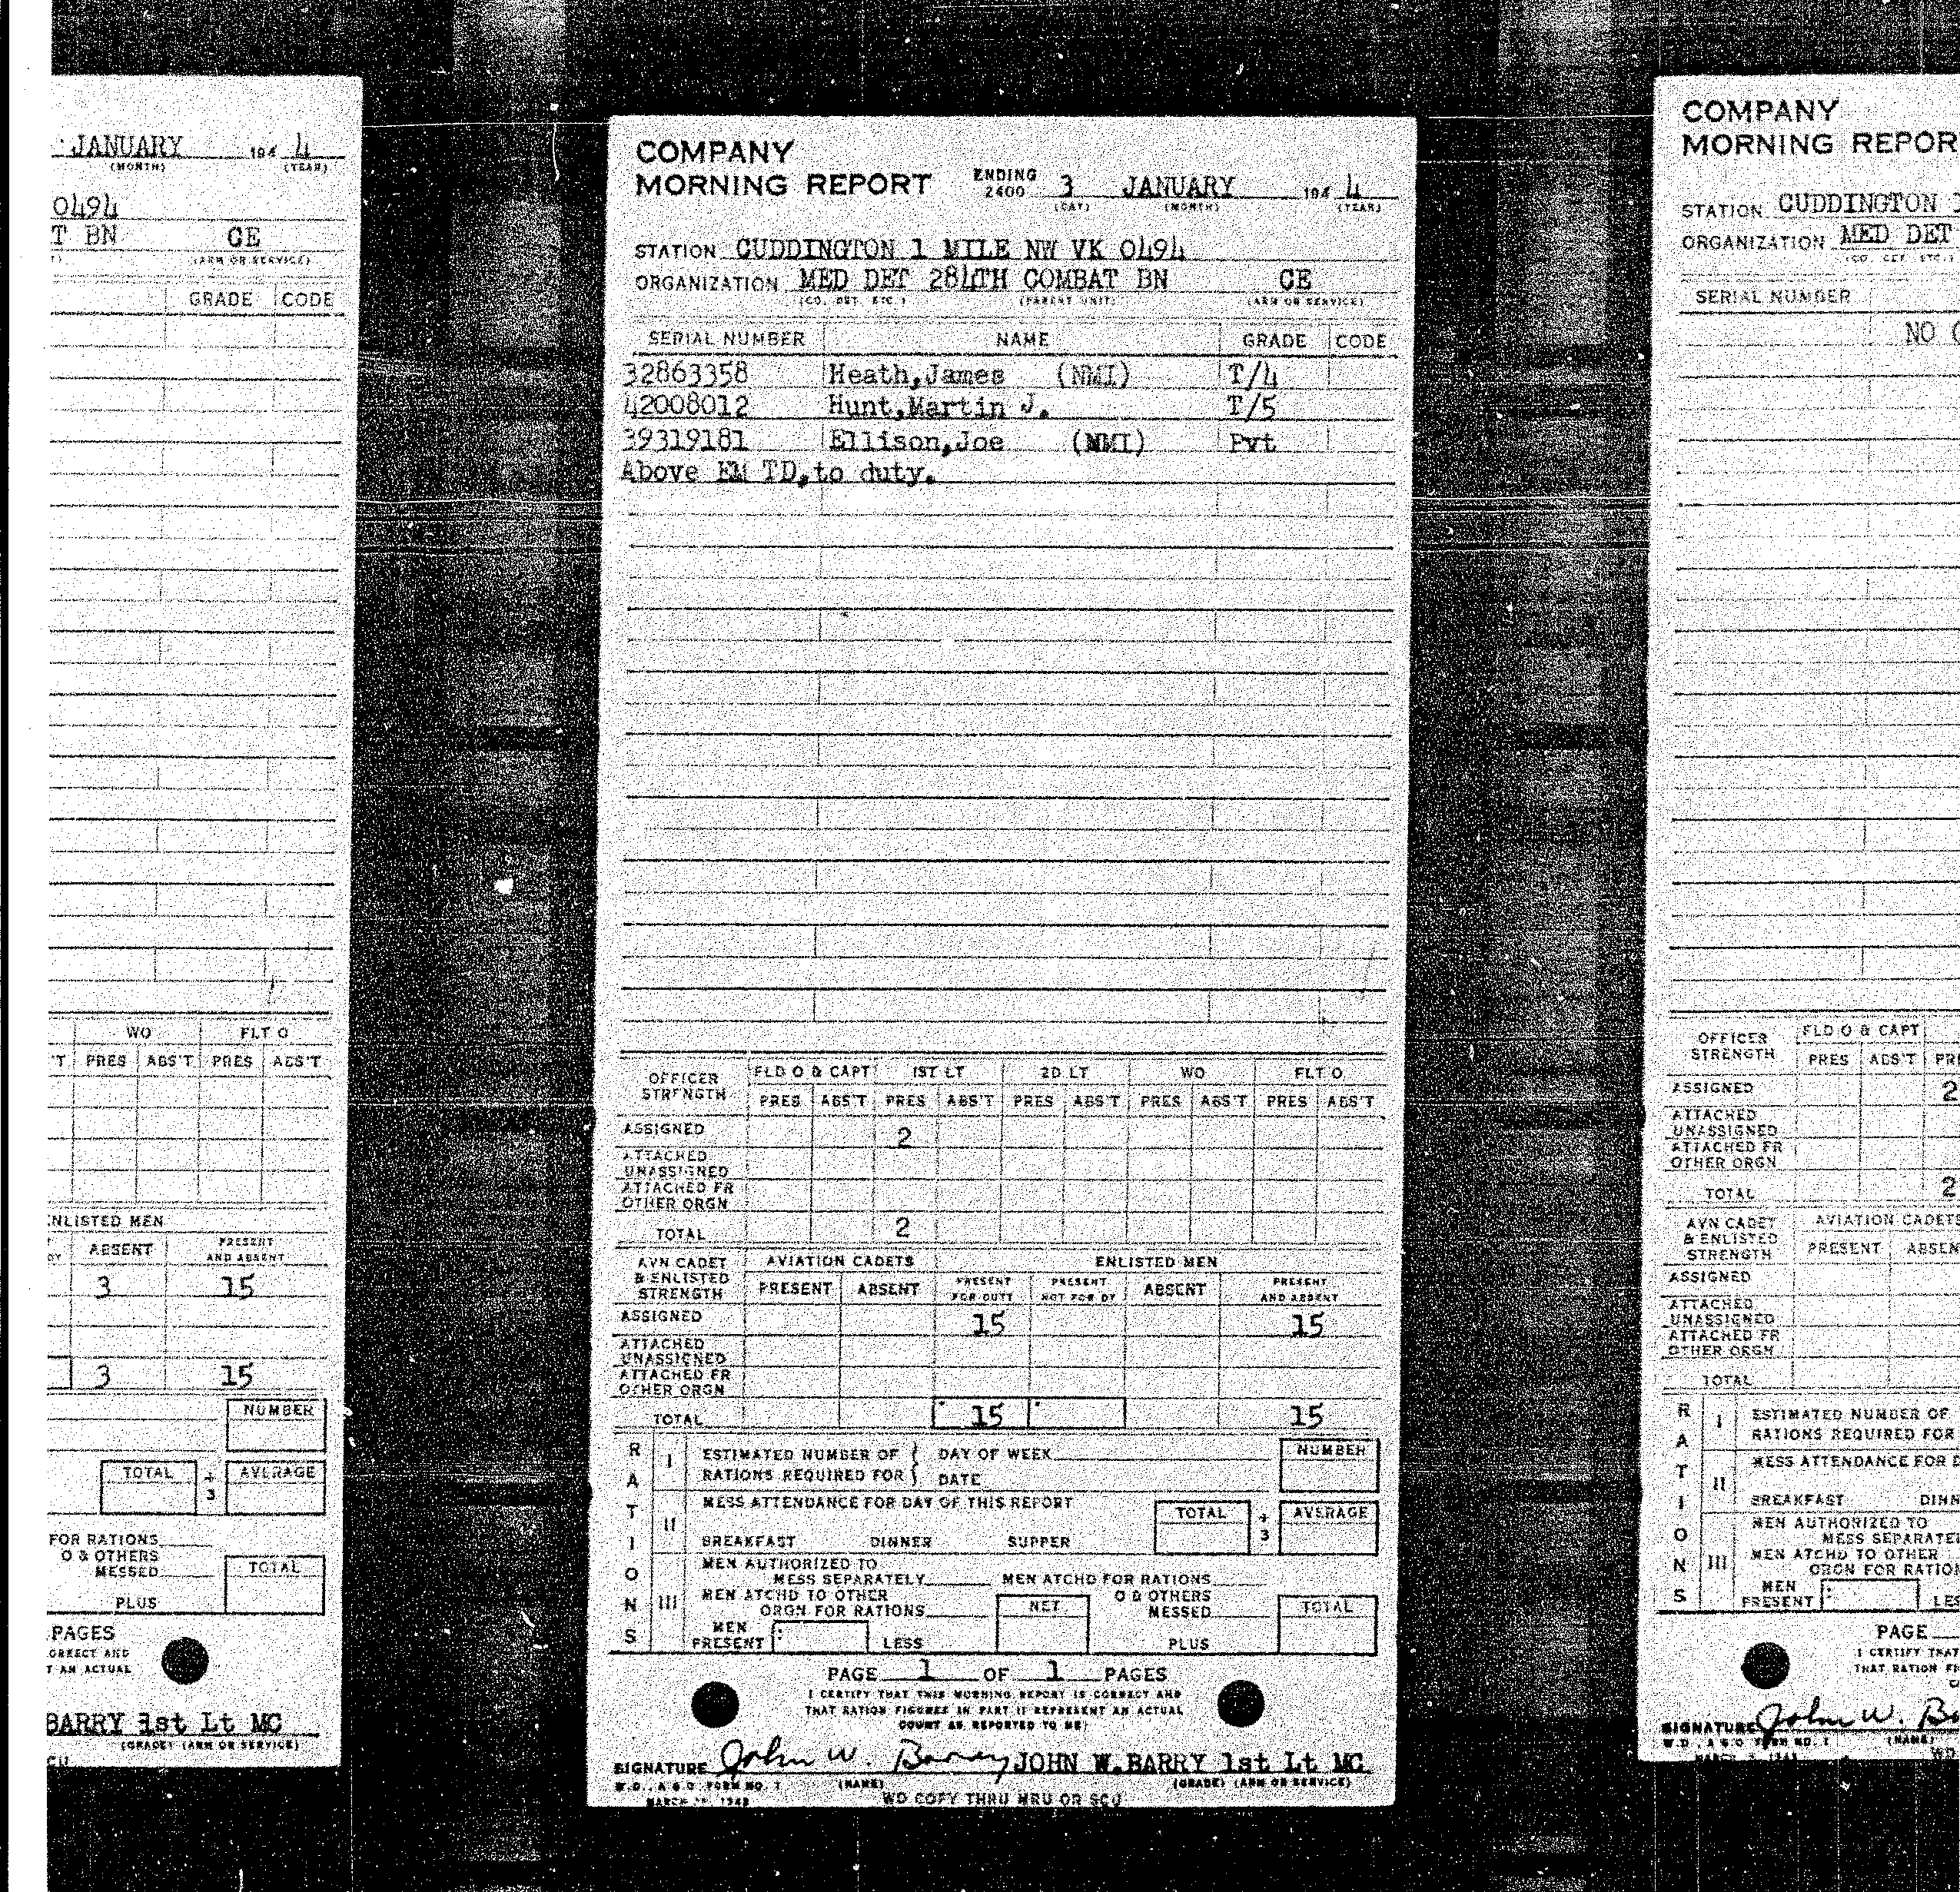 JANUARY 194 4
(MONTH) (YEAR)
0494
T BN CE
(ARM OR SERVICE)
GRADE CODE
WO FLT O
'T PRES ABS'T PRES ABS'T
ENLISTED MEN
ABSENT PRESENT AND ABSENT
3 15
3 15
NUMBER
TOTAL ÷ 3 AVERAGE
FOR RATIONS
O & OTHERS
MESSED TOTAL
PLUS
PAGES
CORRECT AND
T AN ACTUAL
BARRY 1st Lt MC
(GRADE) (ARM OR SERVICE)
COMPANY
MORNING REPORT ENDING 2400 3 JANUARY 194 4
(DAY) (MONTH) (YEAR)
STATION CUDDINGTON 1 MILE NW VK 0494
ORGANIZATION MED DET 284TH COMBAT BN CE
(CO. DET. ETC.) (PARENT UNIT) (ARM OR SERVICE)
SERIAL NUMBER NAME GRADE CODE
32863358 Heath,James (NMI) T/4
42008012 Hunt,Martin J. T/5
39319181 Ellison,Joe (NMI) Pvt
Above EM TD,to duty.
OFFICER STRENGTH FLD O & CAPT 1ST LT 2D LT WO FLT O
PRES ABS'T PRES ABS'T PRES ABS'T PRES ABS'T PRES ABS'T
ASSIGNED 2
ATTACHED UNASSIGNED
ATTACHED FR OTHER ORGN
TOTAL 2
AVN CADET & ENLISTED STRENGTH AVIATION CADETS ENLISTED MEN
PRESENT ABSENT PRESENT FOR DUTY PRESENT NOT FOR DY ABSENT PRESENT AND ABSENT
ASSIGNED 15 15
ATTACHED UNASSIGNED
ATTACHED FR OTHER ORGN
TOTAL 15 15
RATIONS
I ESTIMATED NUMBER OF DAY OF WEEK NUMBER
RATIONS REQUIRED FOR DATE
II MESS ATTENDANCE FOR DAY OF THIS REPORT TOTAL ÷ 3 AVERAGE
BREAKFAST DINNER SUPPER
III MEN AUTHORIZED TO
MESS SEPARATELY MEN ATCHD FOR RATIONS
MEN ATCHD TO OTHER O & OTHERS
ORGN FOR RATIONS NET MESSED TOTAL
MEN PRESENT LESS PLUS
PAGE 1 OF 1 PAGES
I CERTIFY THAT THIS MORNING REPORT IS CORRECT AND
THAT RATION FIGURES IN PART II REPRESENT AN ACTUAL
COUNT AS REPORTED TO ME
SIGNATURE John W. Barry JOHN W.BARRY 1st Lt MC
W.D., A G O FORM NO. 1 (NAME) (GRADE) (ARM OR SERVICE)
WD COPY THRU MRU OR SCU
COMPANY
MORNING REPOR
STATION CUDDINGTON 1
ORGANIZATION MED DET
(CO. DET. ETC.)
SERIAL NUMBER
NO
OFFICER STRENGTH FLD O & CAPT
PRES ABS'T PRE
ASSIGNED 2
ATTACHED UNASSIGNED
ATTACHED FR OTHER ORGN
TOTAL 2
AVN CADET & ENLISTED STRENGTH AVIATION CADETS
PRESENT ABSEN
ASSIGNED
ATTACHED UNASSIGNED
ATTACHED FR OTHER ORGN
TOTAL
RATIONS
I ESTIMATED NUMBER OF
RATIONS REQUIRED FOR
II MESS ATTENDANCE FOR D
BREAKFAST DINN
III MEN AUTHORIZED TO
MESS SEPARATEL
MEN ATCHD TO OTHER
ORGN FOR RATION
MEN PRESENT LES
PAGE
I CERTIFY THAT
THAT RATION FI
SIGNATURE John W. Ba
W.D., A G O FORM NO. 1 (NAME)
WD